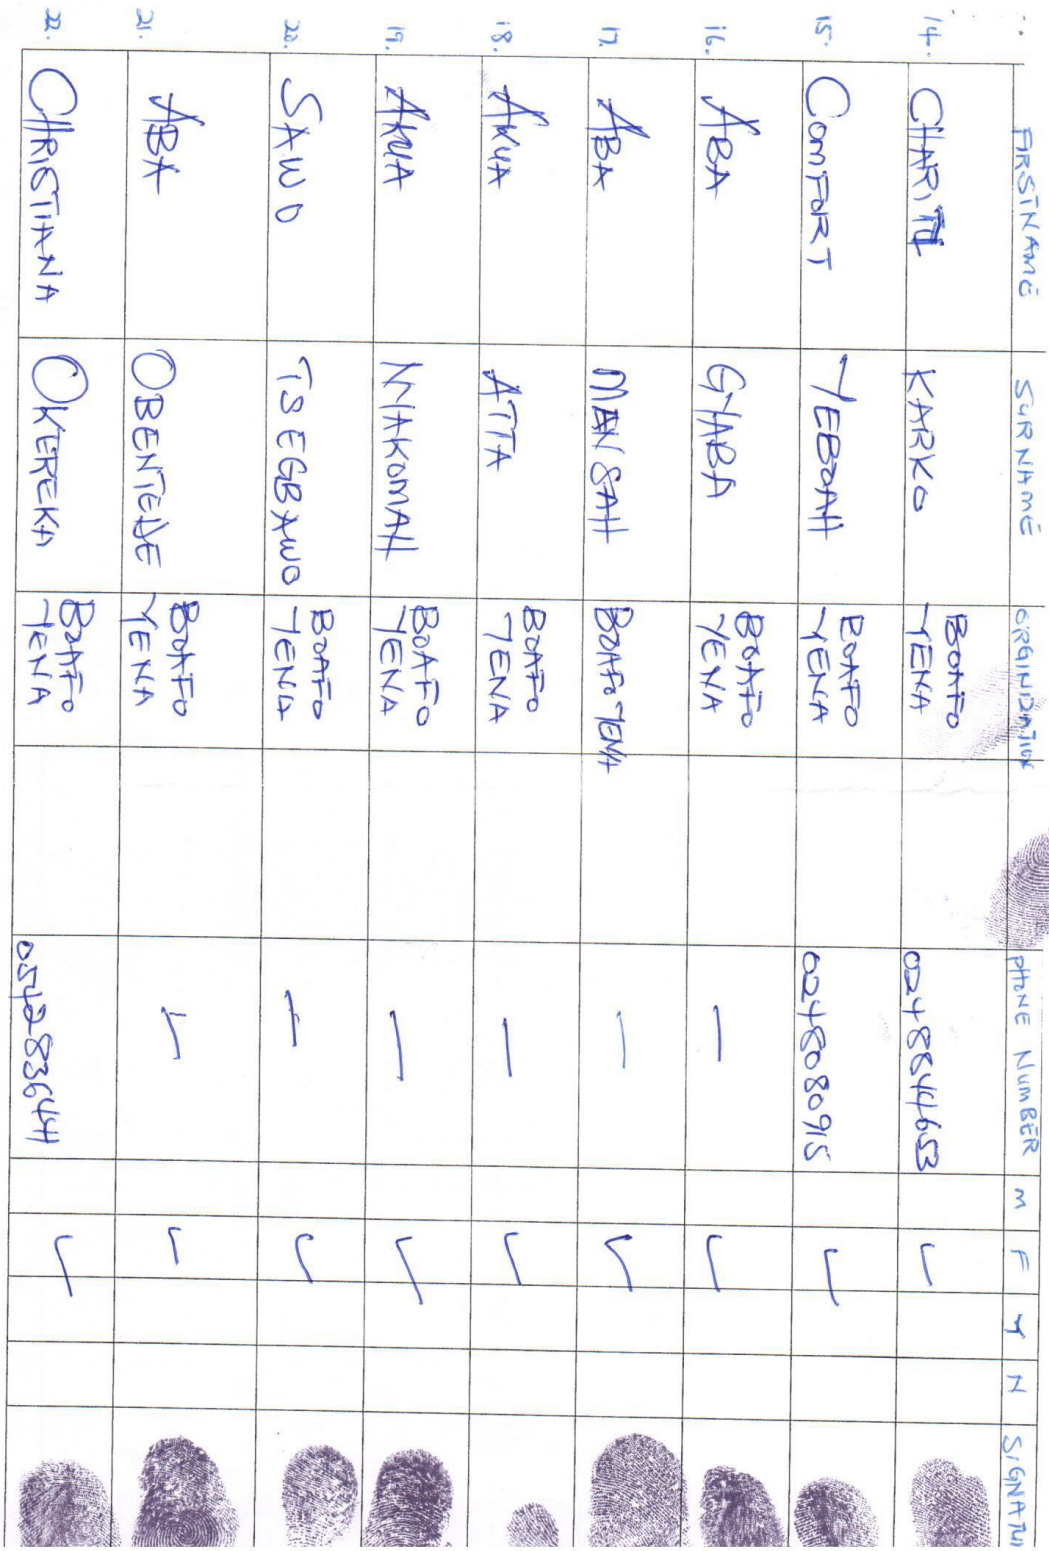 FIRSTNAME SURNAME ORGINIZATION PHONE NUMBER M F Y N SIGNATU
14. CHARITY KARKO BOAFO YENA 0248844653 ✓
15. COMFORT YEBOAH BOAFO YENA 0248080915 ✓
16. ABA GYABA BOAFO YENA — ✓
17. ABA MENSAH BOAFO YENA — ✓
18. AKUA ATTA BOAFO YENA — ✓
19. AKUA NYAKOMAH BOAFO YENA — ✓
20. SAWO TSEGBAWO BOAFO YENA — ✓
21. ABA BOAFO YENA — ✓
22. CHRISTIANA OKEREKA BOAFO YENA 0542836441 ✓